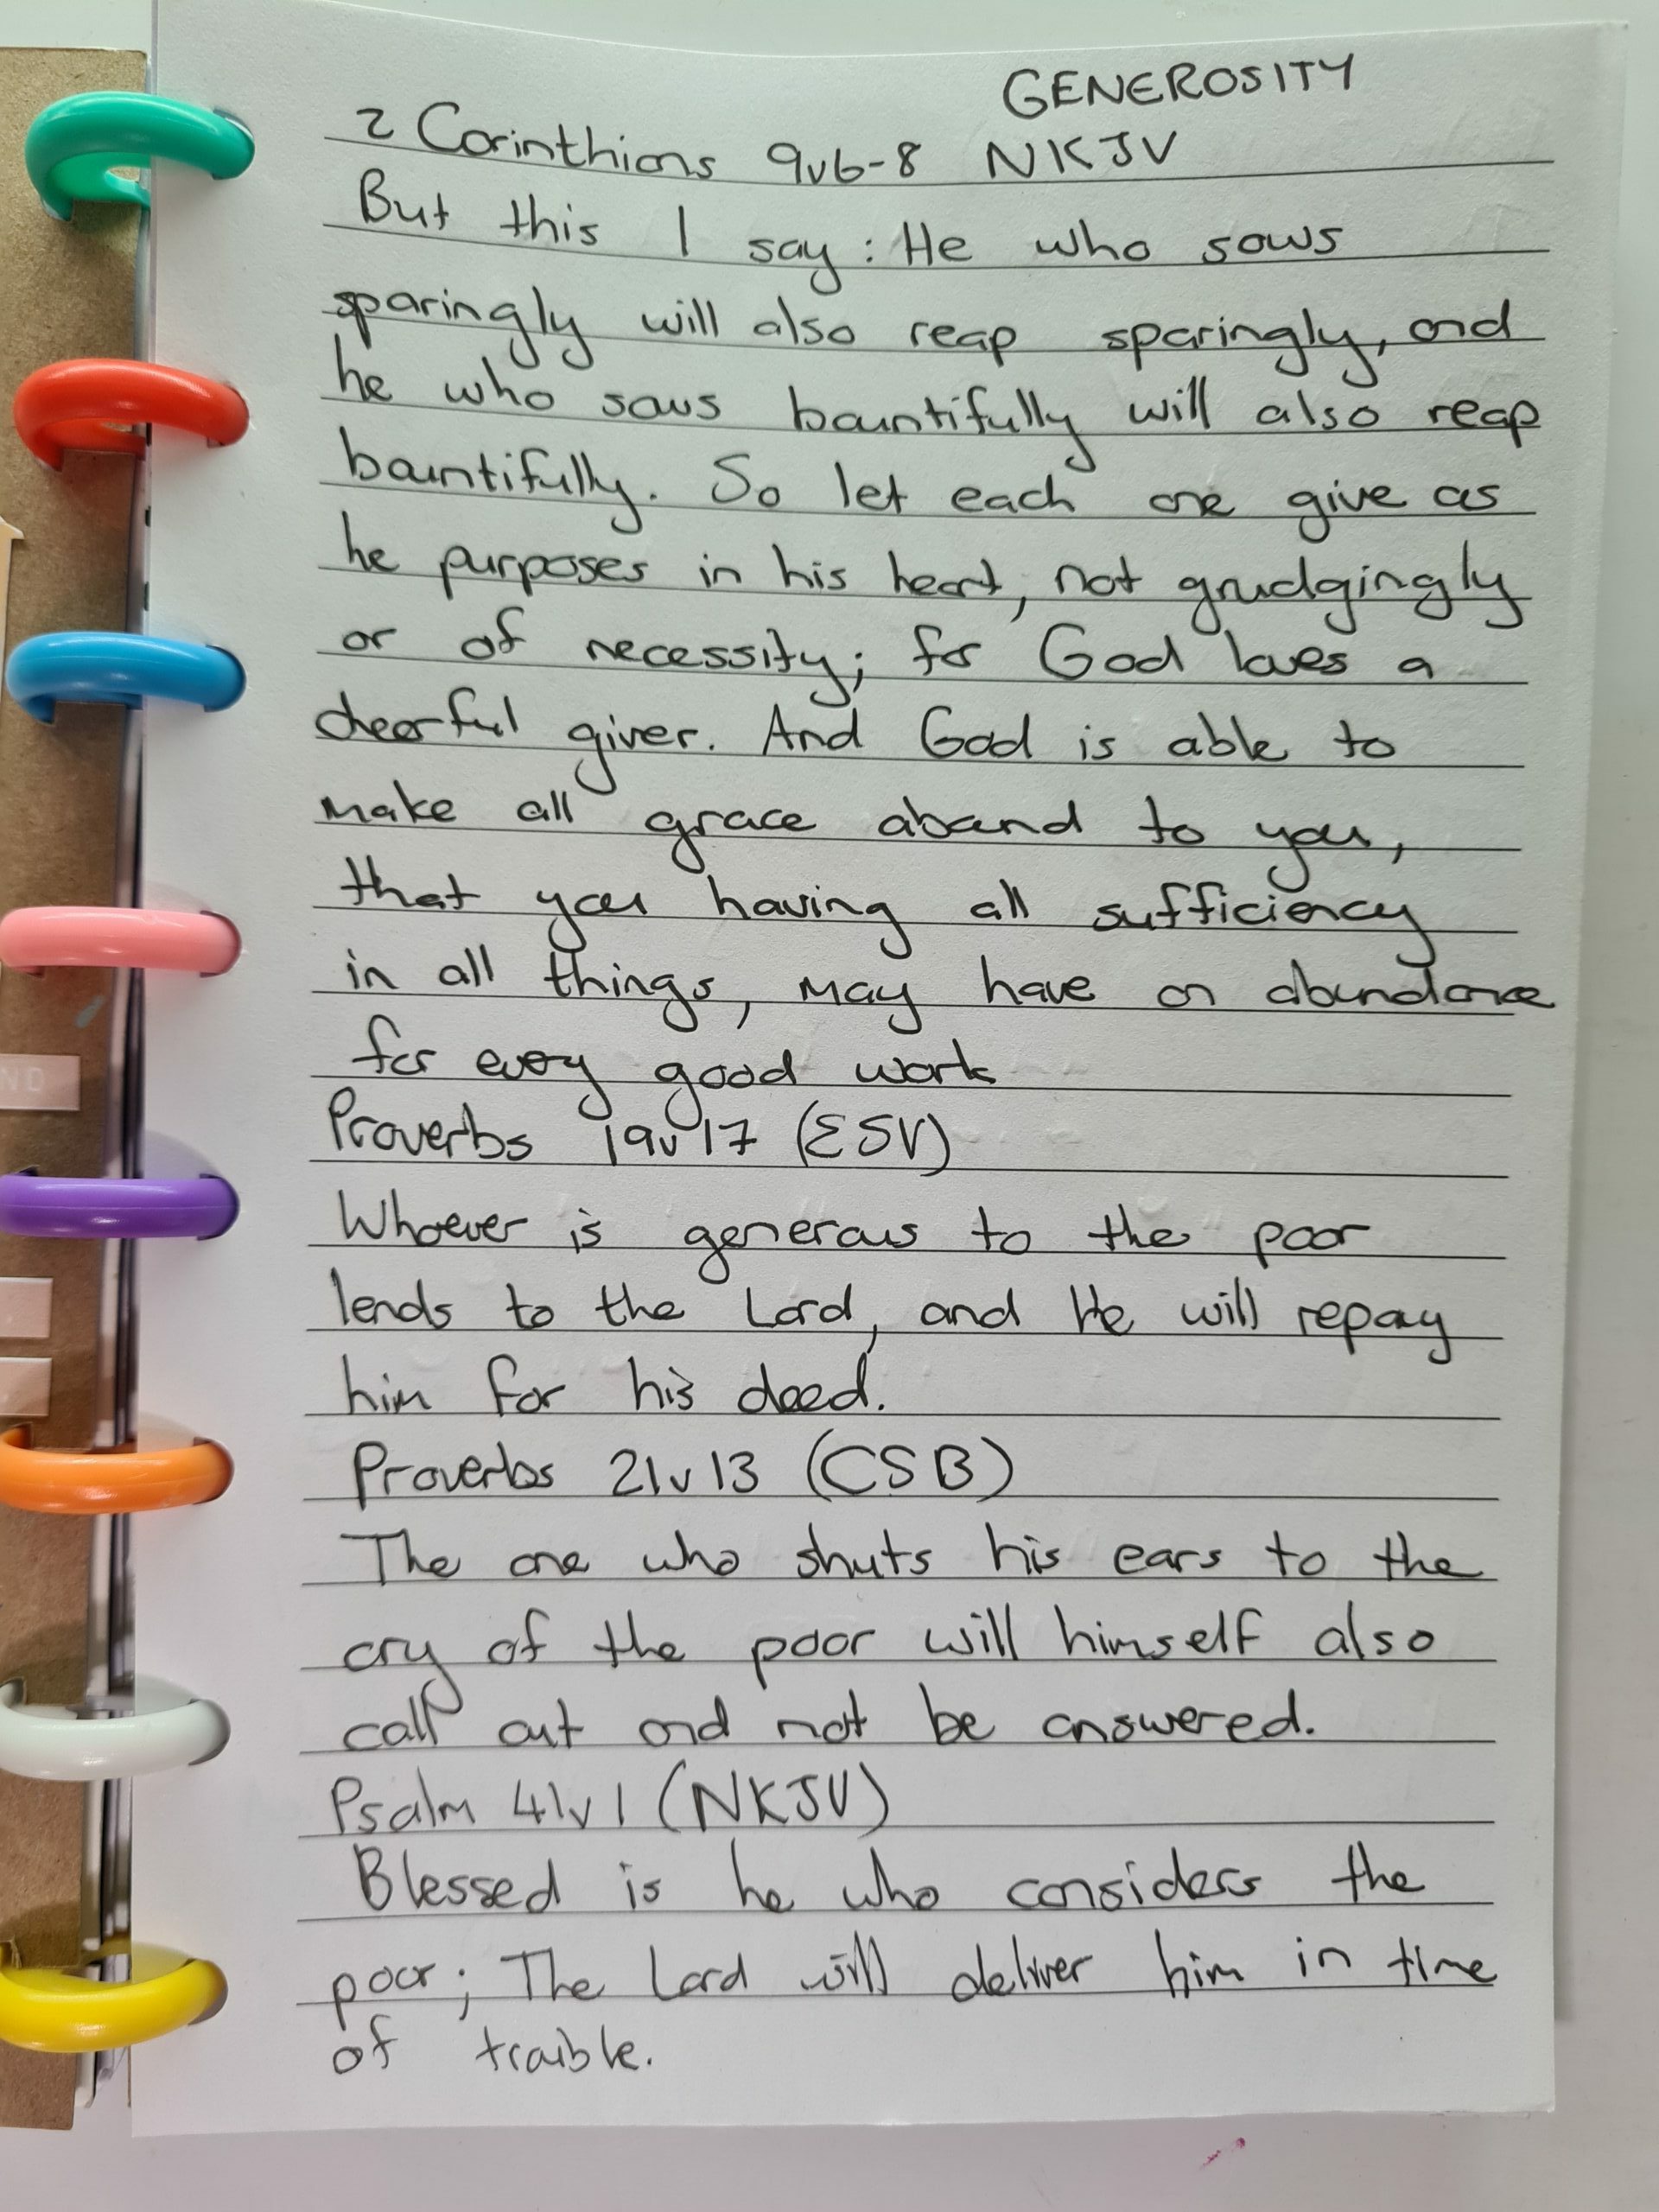 GENEROSITY
2 Corinthians 9v6-8 NKJV
But this I say: He who sows
sparingly will also reap sparingly, and
he who sows bountifully will also reap
bountifully. So let each one give as
he purposes in his heart, not grudgingly
or of necessity; for God loves a
cheerful giver. And God is able to
make all grace abound to you,
that you having all sufficiency
in all things, may have an abundance
for every good work
Proverbs 19v17 (ESV)
Whoever is generous to the poor
lends to the Lord, and He will repay
him for his deed.
Proverbs 21v13 (CSB)
The one who shuts his ears to the
cry of the poor will himself also
call out and not be answered.
Psalm 41v1 (NKJV)
Blessed is he who considers the
poor; The Lord will deliver him in time
of trouble.